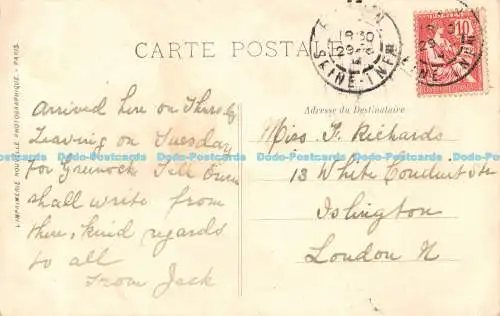 CARTE POSTALE
18 30
29
SEINE-INFRE
10
29
SEINE-INFRE
Arrived here on Thursday
Leaving on Tuesday
for Greenock Tell Owen
shall write from
there, kind regards
to all
From Jack
Adresse du Destinataire
Miss F. Richards
13 White Conduit Ste
Islington
London N
L'IMPRIMERIE NOUVELLE PHOTOGRAPHIQUE - PARIS
Dodo-Postcards Dodo-Postcards Dodo-Postcards Dodo-Postcards Dodo-Postcards Dodo-Postcards